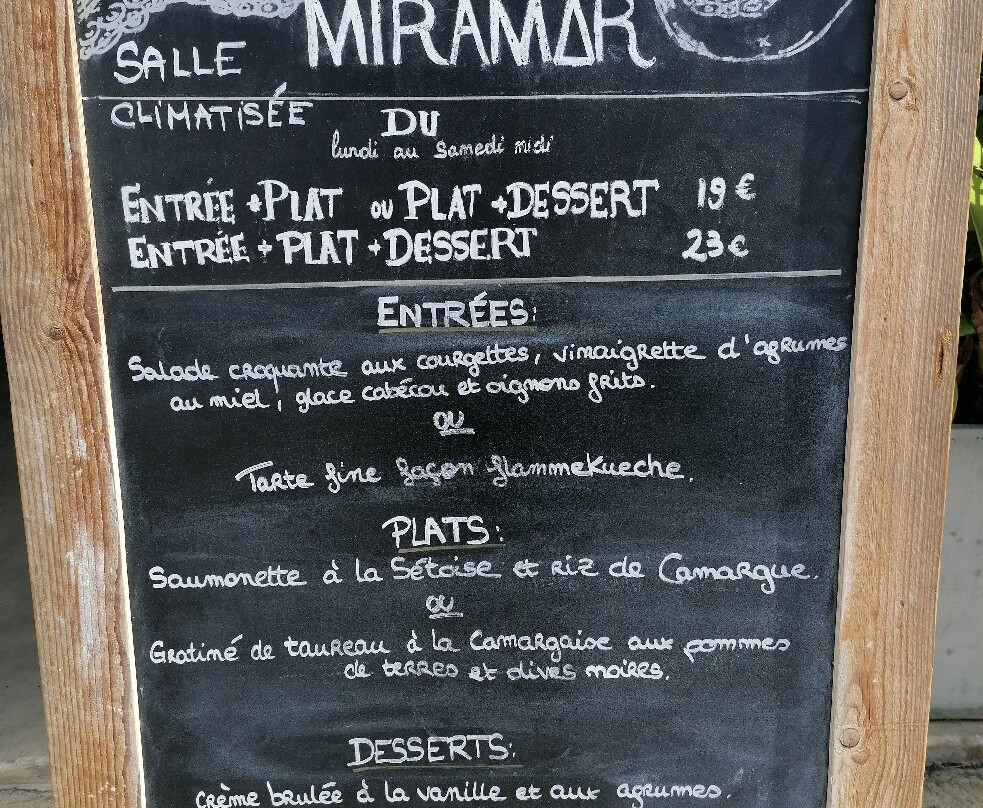 MIRAMAR
SALLE
CLIMATISÉE
DU
lundi au samedi midi
ENTRÉE + PLAT ou PLAT + DESSERT 19 €
ENTRÉE + PLAT + DESSERT 23 €
ENTRÉES:
Salade croquante aux courgettes, vinaigrette d'agrumes
au miel, glace cabécou et oignons frits.
ou
Tarte fine façon flammekueche.
PLATS:
Saumonette à la Sétoise et riz de Camargue.
ou
Gratiné de taureau à la Camargaise aux pommes
de terres et olives noires.
DESSERTS:
Crème brulée à la vanille et aux agrumes.